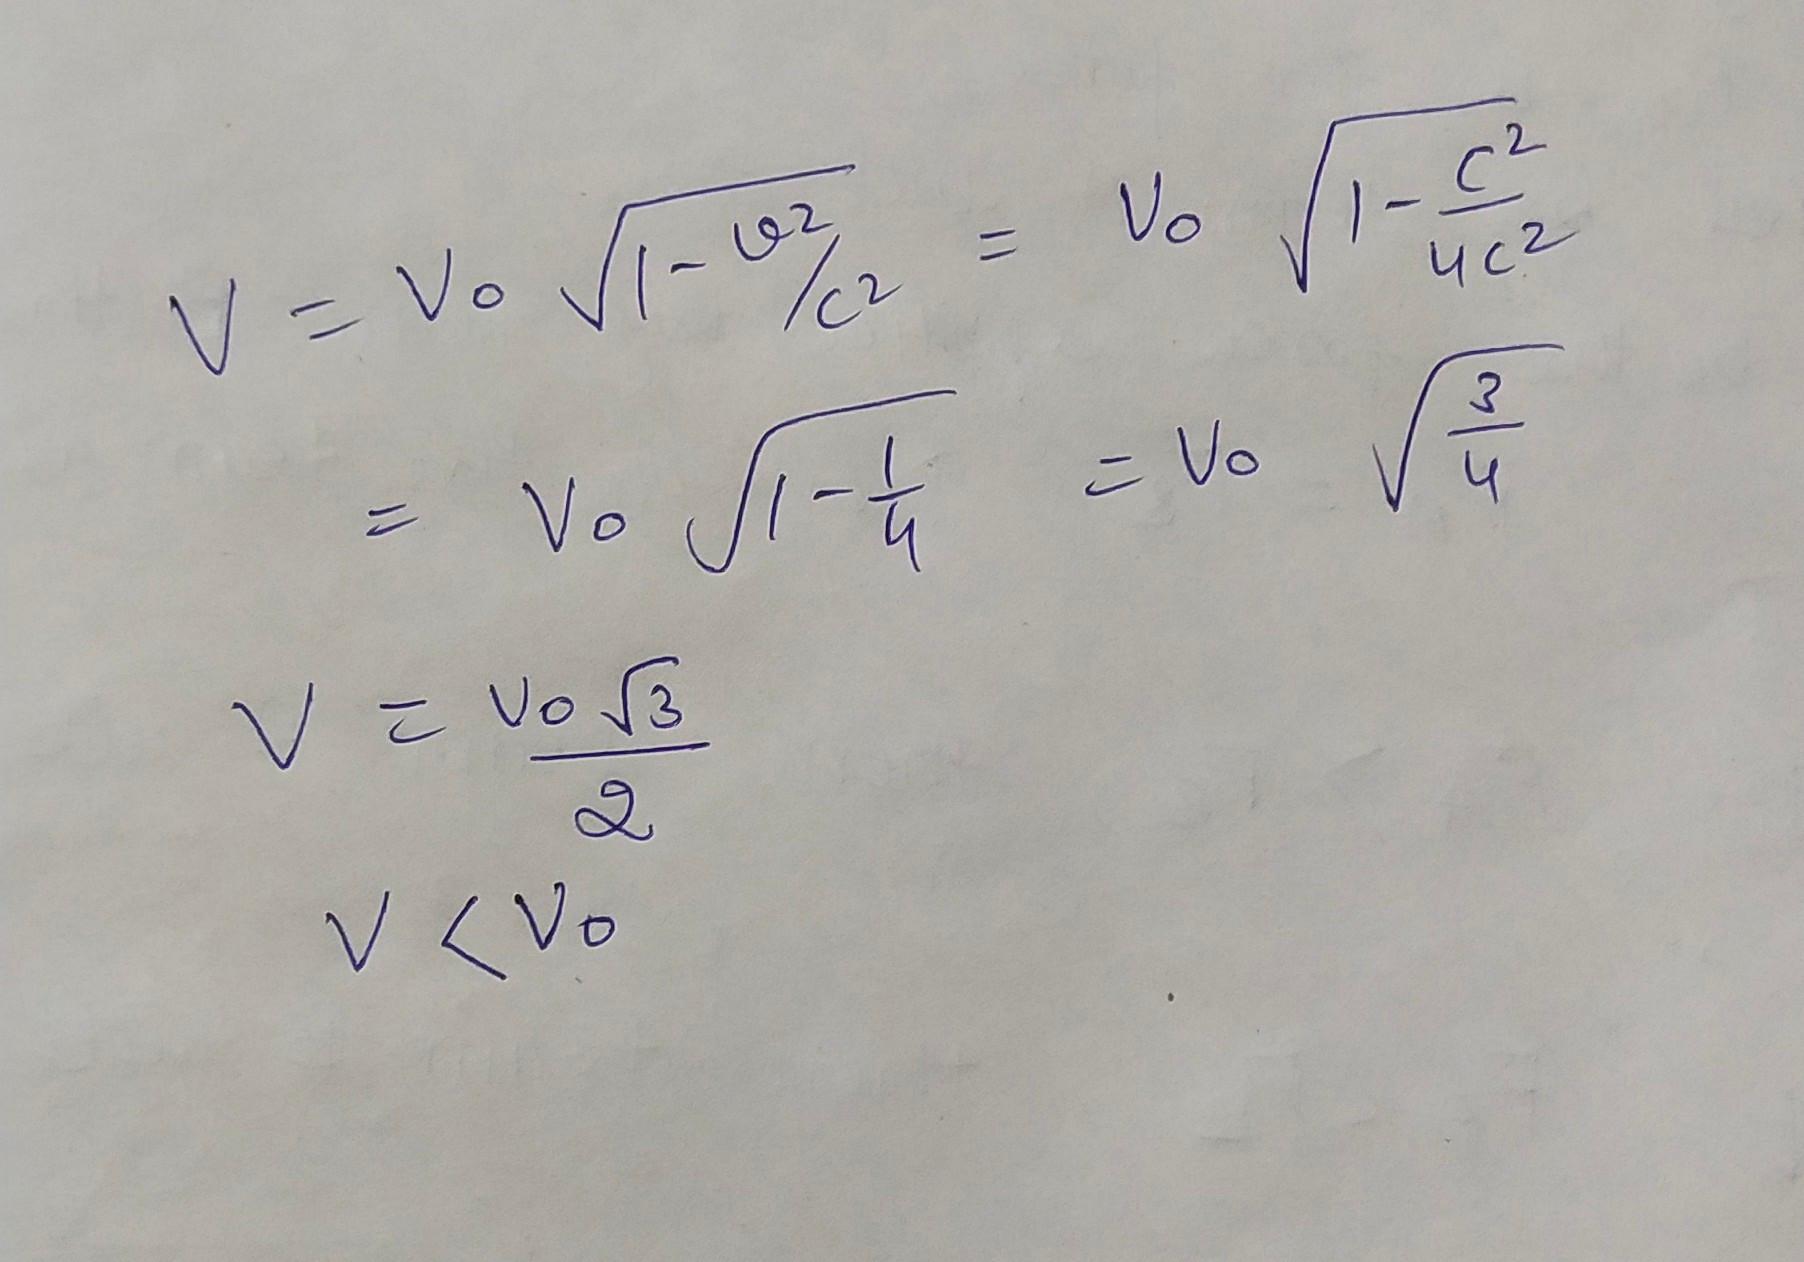 V = V₀ √(1 - v²/c²) = V₀ √(1 - c²/4c²)
= V₀ √(1 - 1/4) = V₀ √(3/4)
V = V₀√3/2
V < V₀